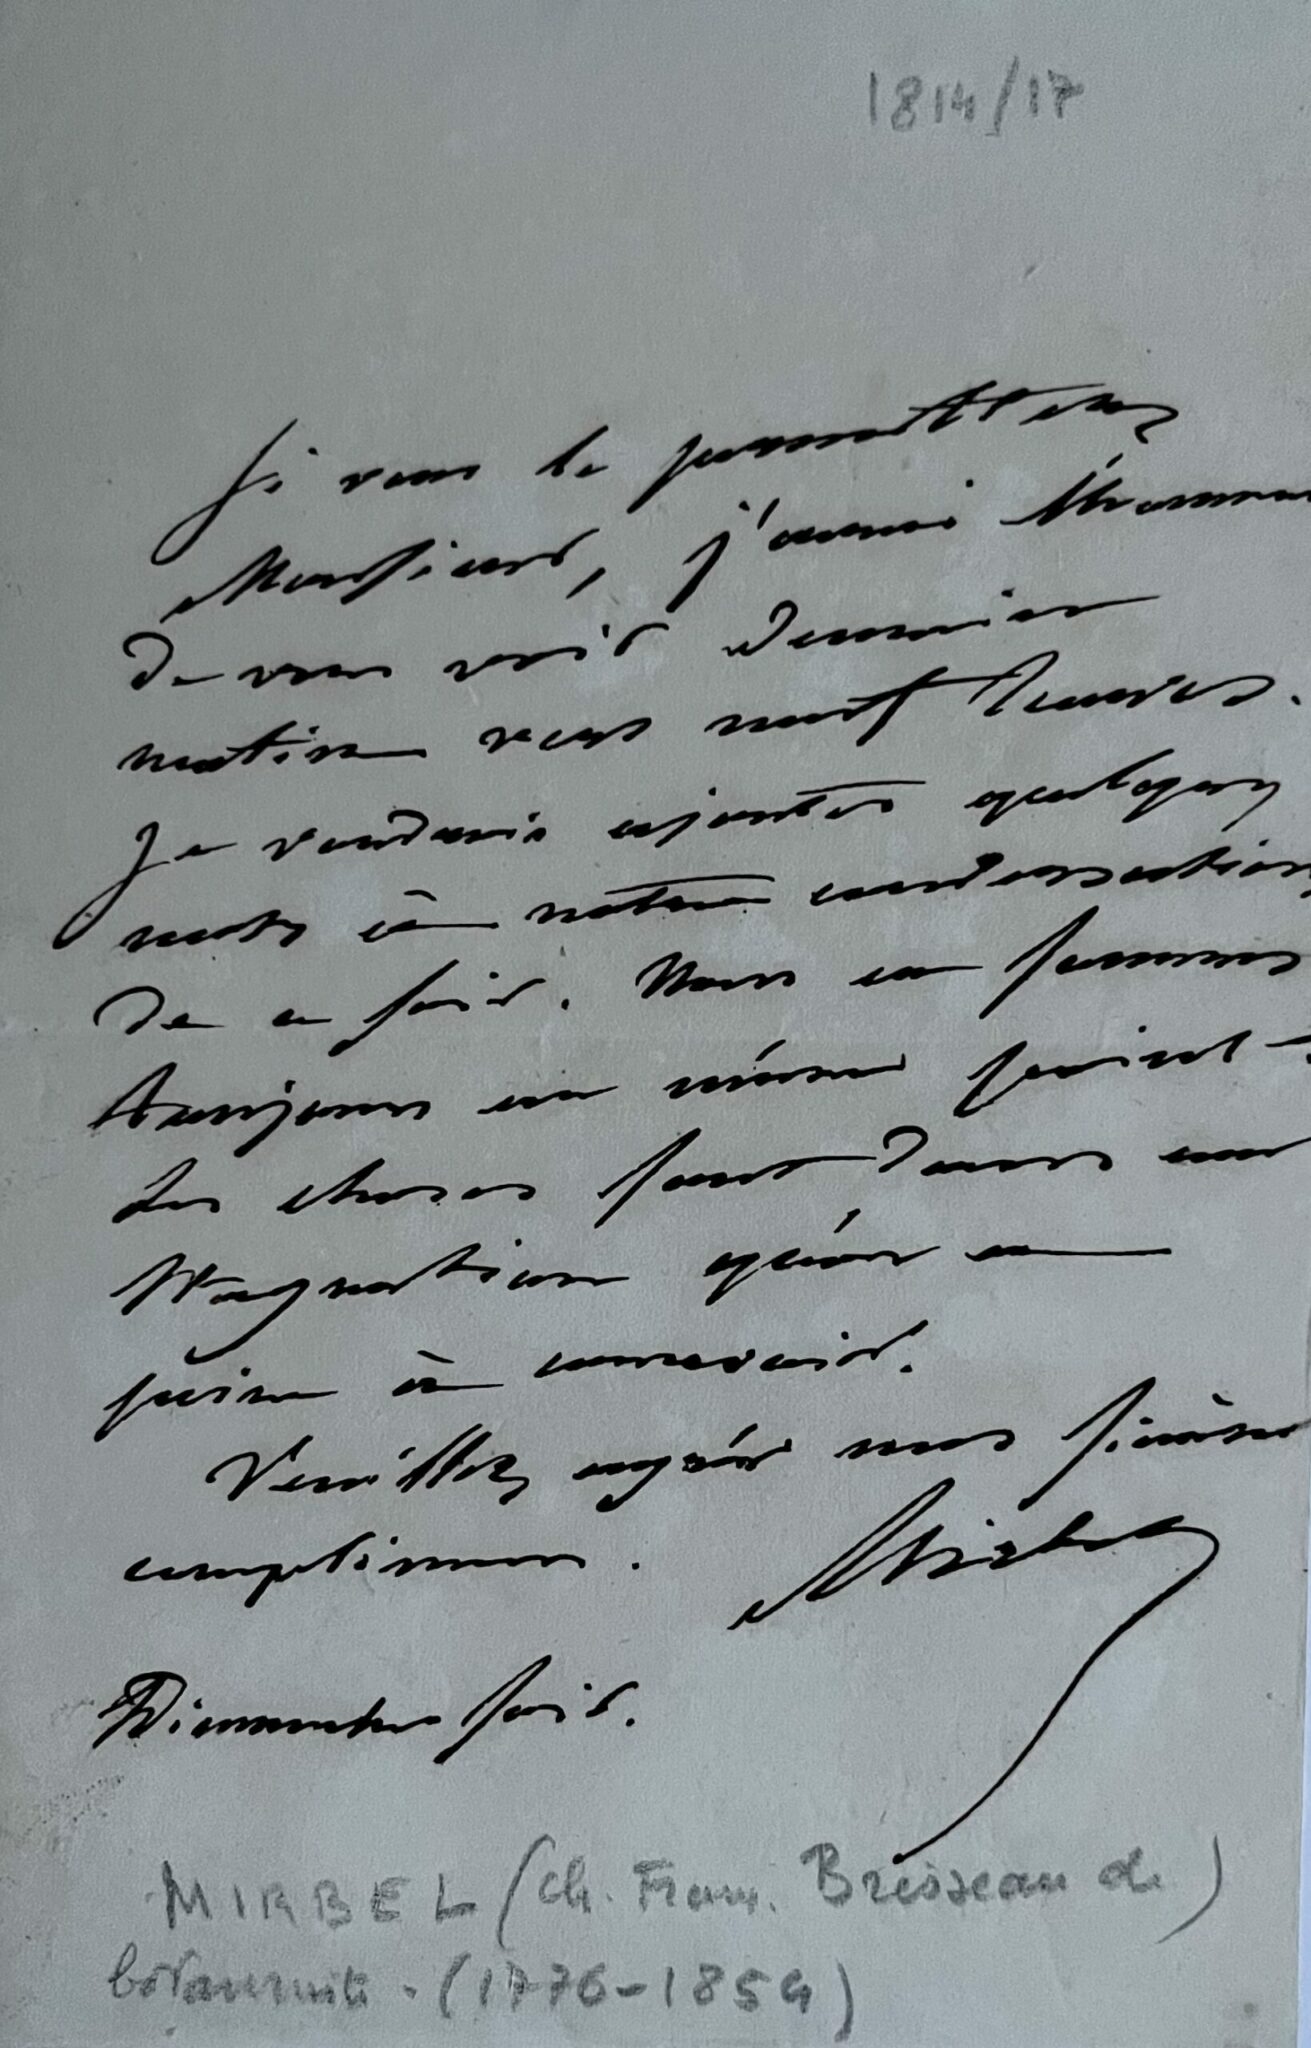 1814/17
Si vous le permettez
Monsieur, j'aurai l'honneur
de vous voir demain
matin vers neuf heures.
Je voudrais ajouter quelques
mots à notre conversation
de ce soir. Nous en sommes
toujours au même point -
Les choses sont dans une
stagnation que j'ai
peine à concevoir.
Veuillez agréer mes sincères
complimens. Mirbel
Dimanche soir.
MIRBEL (Ch. Franç. Brisseau de)
botaniste - (1776-1854)